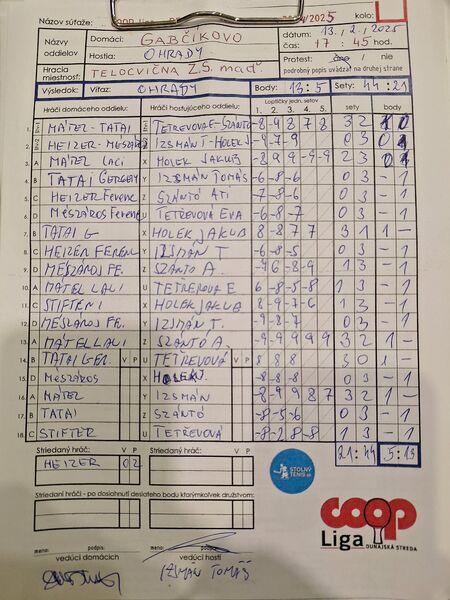 Názov súťaže: COOP Liga 2024/2025 kolo:
Názvy oddielov Domáci: GABČÍKOVO dátum: 13. / 2. / 2025
Hostia: OHRADY čas: 17 : 45 hod.
Hracia miestnosť: TELOCVIČNA Z.Š. maď. Protest: áno / nie
podrobný popis uvádzať na druhej strane
Výsledok: Víťaz: OHRADY Body: 13 : 5 Sety: 44 : 21
Hráči domáceho oddielu: Hráči hosťujúceho oddielu: Loptičky jedn. setov: 1. 2. 3. 4. 5. sety body
1. MÁTEL - TATAI TETREVOVÁ E-SZANTÓ -8 -9 8 7 8 3 2 1
2. HEIZER - MESZÁROS IZSMÁN T-HOLEK J -9 -7 -9 0 3
3. A MÁTEL LACI X HOLEK JAKUB -8 9 9 -9 -9 2 3
4. B TATAI GERGELY Y IZSMÁN TOMÁS -6 -8 -6 0 3 - 1
5. C HEIZER FERENC Z SZÁNTÓ ATI -7 -8 -6 0 3 - 1
6. D MESZÁROS FERENC U TETREVOVÁ EVA -6 -8 -7 0 3 - 1
7. B TATAI G X HOLEK JAKUB 8 -8 7 7 3 1 1 -
8. C HEIZER FERENC Y IZSMÁN T -6 -8 -5 0 3 - 1
9. D MESZAROS FE. Z SZANTO A. -9 6 -8 -9 1 3 - 1
10. A MÁTEL LACI U TETREVOVÁ E 6 -8 -5 -8 1 3 - 1
11. C STIFTER I X HOLEK JAKUB 8 -9 -7 -6 1 3 - 1
12. D MÉSZAROS FE. Y IZSMÁN T. -9 -8 -7 0 3 - 1
13. A MÁTEL LACI Z SZÁNTÓ A. -9 9 9 9 3 2 1 -
14. B TATAI GER. V P U TETREVOVÁ V P 8 8 8 3 0 1 -
15. D Mészáros X HOLEK J. -8 -8 -8 0 3 - 1
16. A MÁTEL Y IZSMÁN -8 -9 9 8 7 3 2 1 -
17. B TATAI Z SZÁNTÓ -8 -5 -6 0 3 - 1
18. C STIFTER U TETREVOVÁ -8 -2 8 -8 1 3 - 1
Striedaný hráč: V P Striedaný hráč: V P 21 : 44 5 : 13
HEIZER 0 2
STOLNÝ TENIS.sk
Striedaní hráči - po dosiahnutí desiateho bodu ktorýmkoľvek družstvom:
coop
Liga DUNAJSKÁ STREDA
meno: podpis: meno: podpis:
vedúci domácich vedúci hostí
IZSMÁN TOMÁŠ